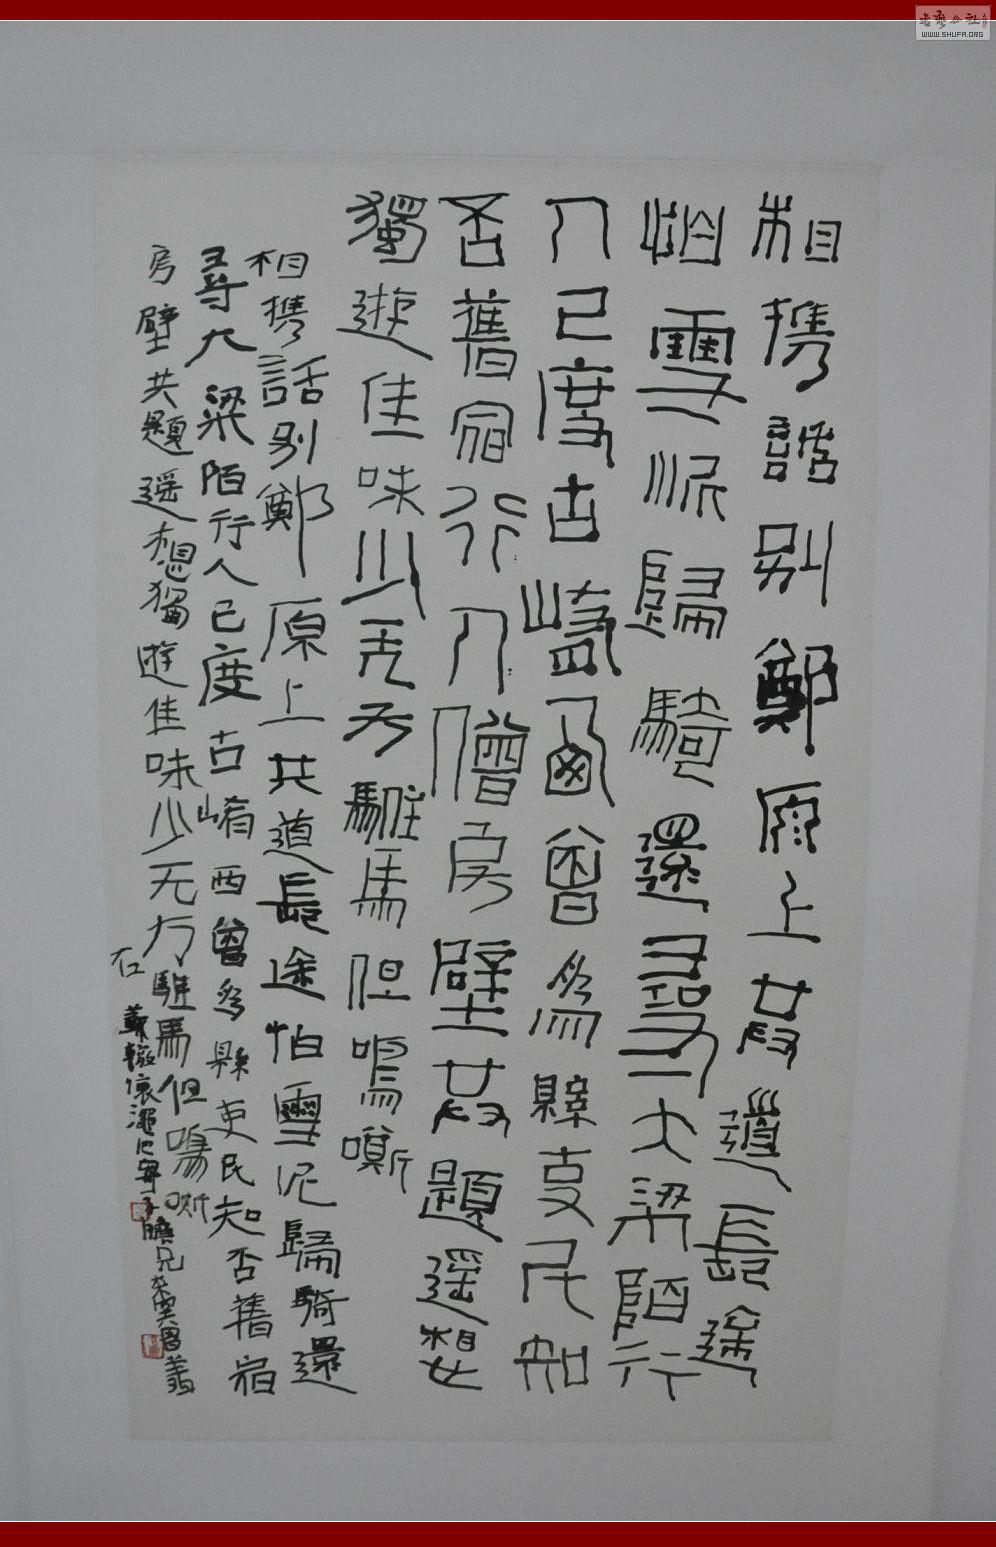 相携話别鄭原上共道長途
怕雪泥歸騎還尋大梁陌行
人已度古崤西曾為縣吏民知
否舊宿行人僧房壁共題遥想
獨遊佳味少无方騅馬但鳴嘶
相携話别鄭原上共道長途怕雪泥歸騎還
尋大梁陌行人已度古崤西曾為縣吏民知否舊宿
房壁共題遥想獨遊佳味少无方騅馬但鳴嘶
右蘇轍懷澠池寄子瞻兄
WWW.SHUFA.ORG